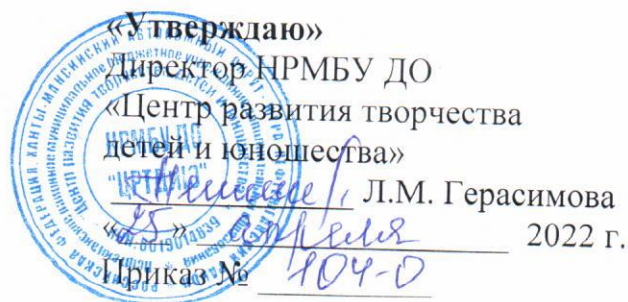 «Утверждаю»
Директор НРМБУ ДО
«Центр развития творчества
детей и юношества»
Л.М. Герасимова
«25» апреля 2022 г.
Приказ № 104-О
НРМБУ ДО
"ЦРТДиЮ"